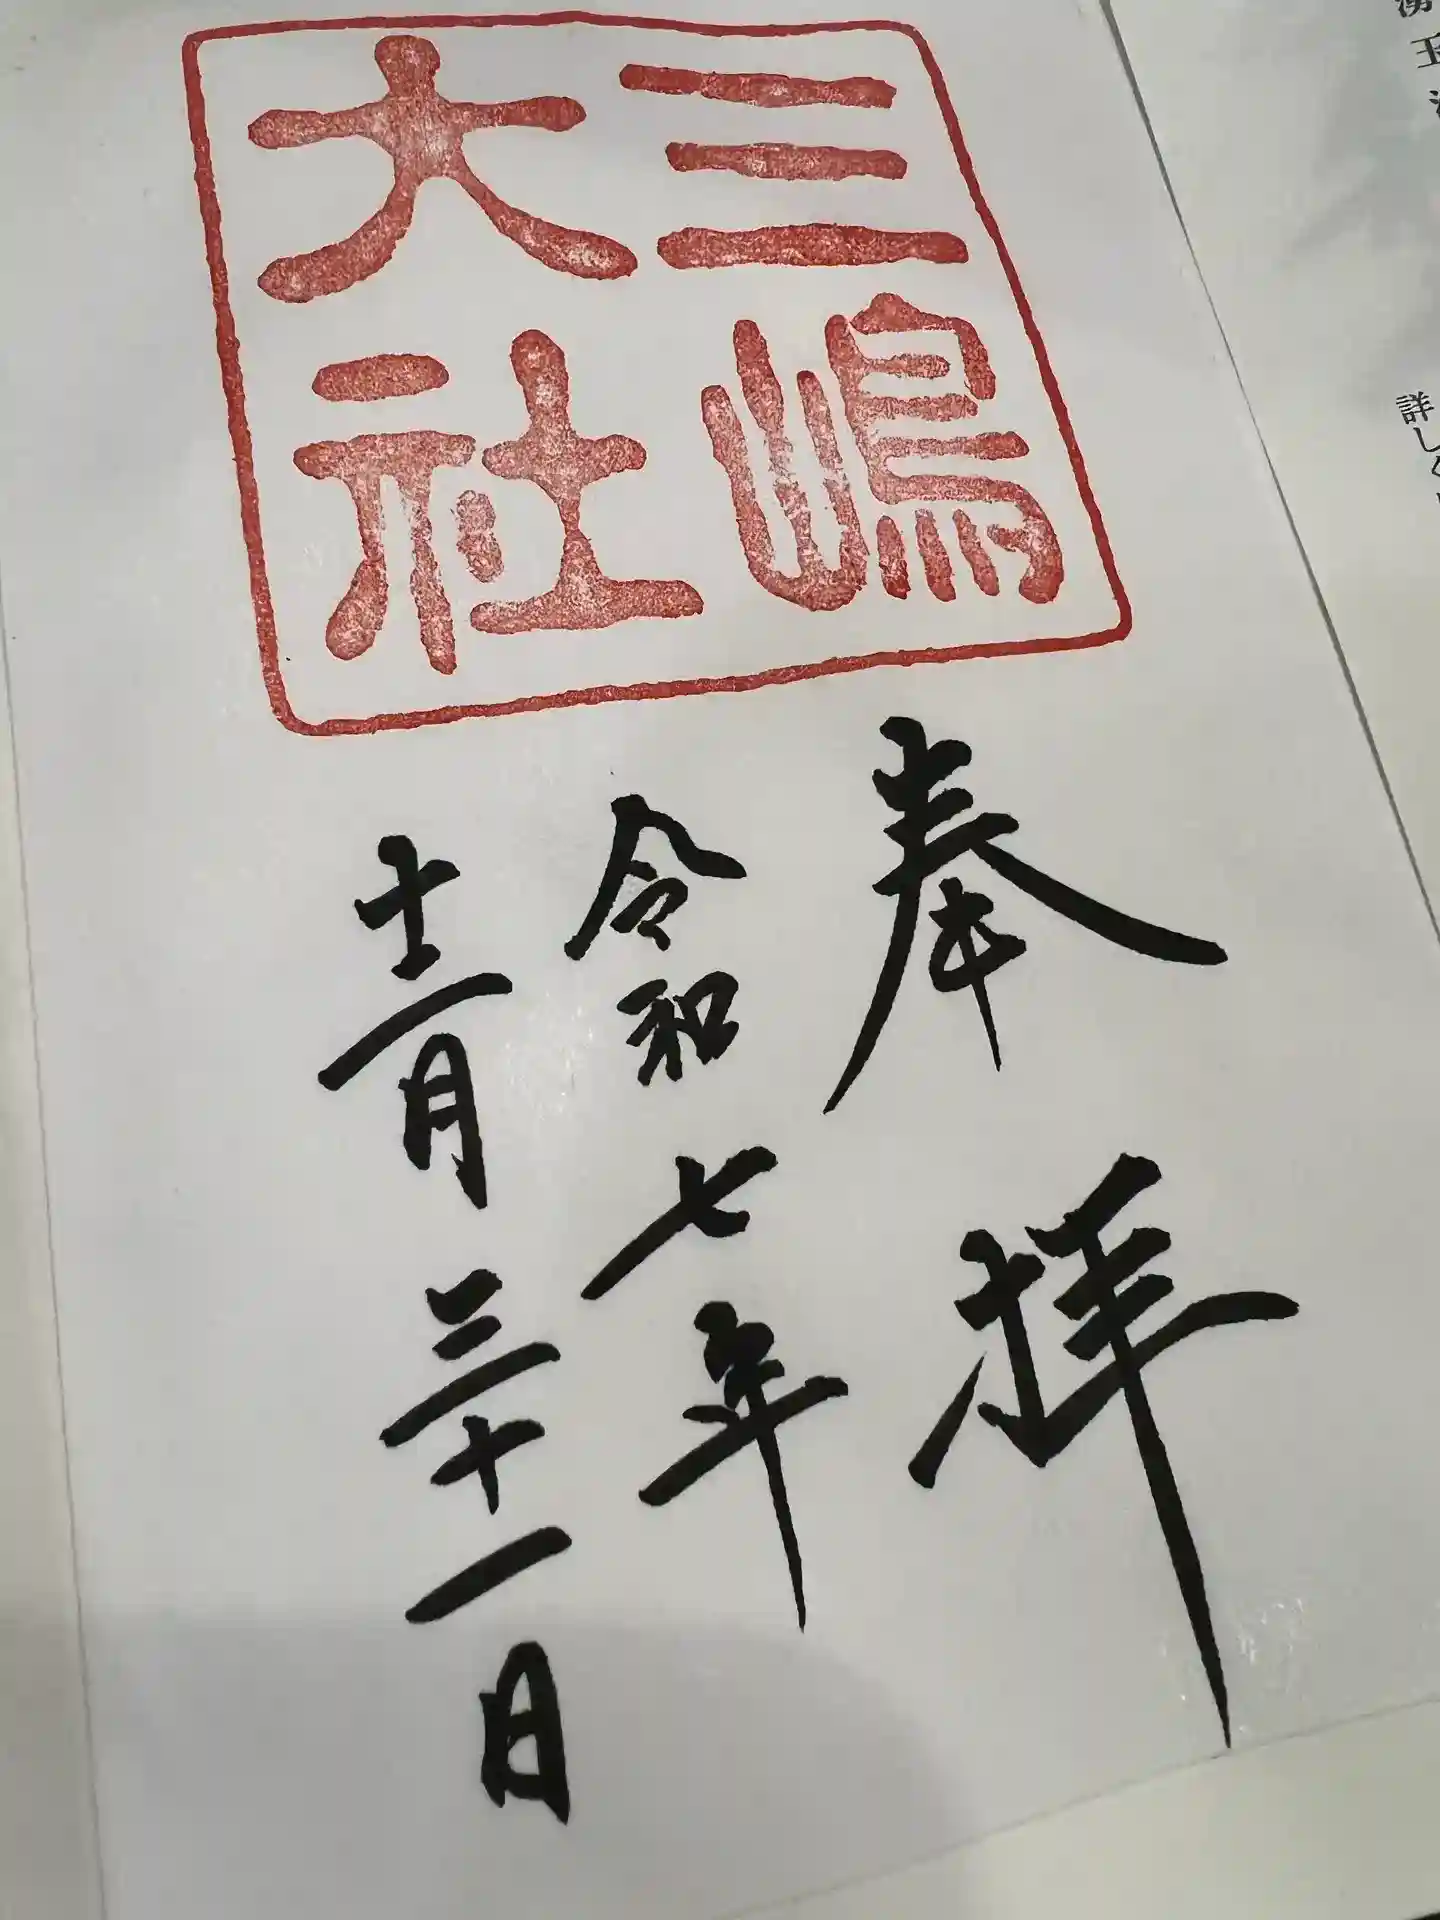 三嶋
大社
奉拝
令和七年
十二月三十一日
詳し